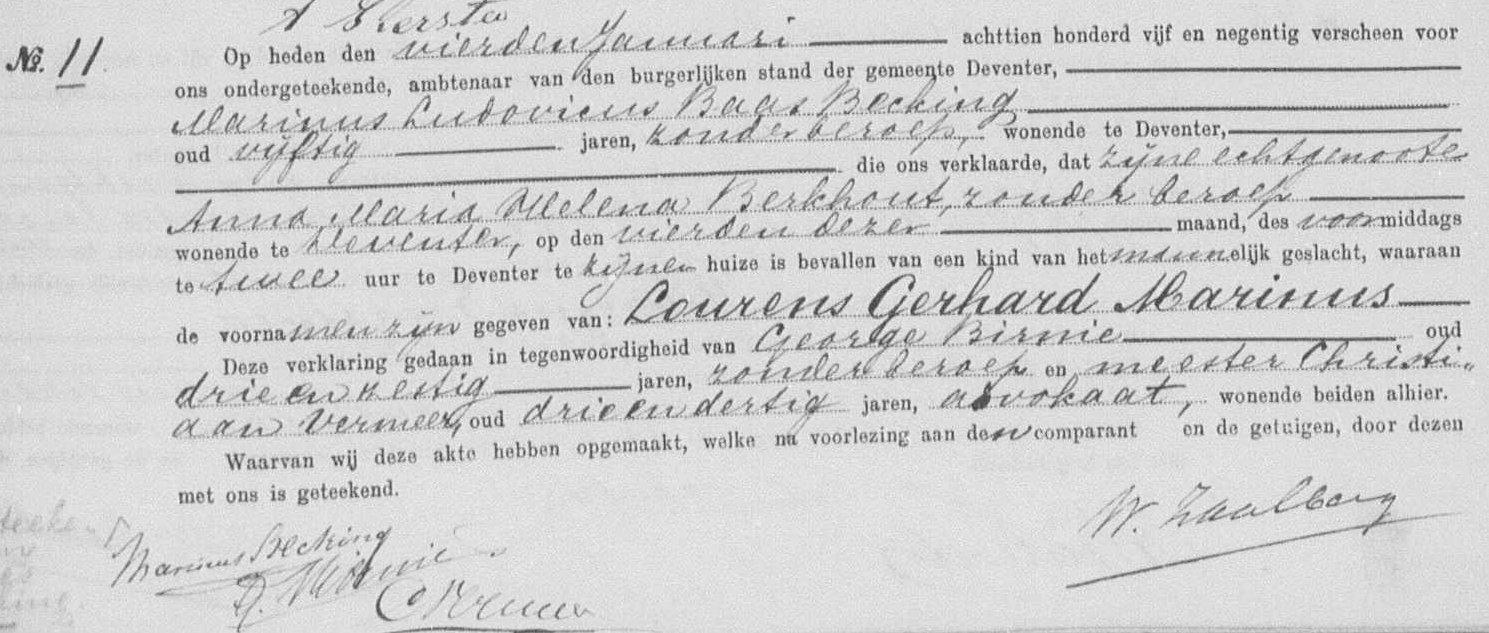 Nº. 11. Op heden den vierden Januari achttien honderd vijf en negentig verscheen voor
ons ondergeteekende, ambtenaar van den burgerlijken stand der gemeente Deventer,
Marinus Ludovicus Baas Becking
oud vijftig jaren, zonder beroep, wonende te Deventer,
die ons verklaarde, dat zijne echtgenoote
Anna Maria Helena Berkhout, zonder beroep
wonende te Deventer, op den vierden dezer maand, des voormiddags
te twee uur te Deventer te zijnen huize is bevallen van een kind van het mannelijk geslacht, waaraan
de voornamen zijn gegeven van: Lourens Gerhard Marinus
Deze verklaring gedaan in tegenwoordigheid van George Birnie oud
drie en zestig jaren, zonder beroep en meester Christi„
aan Vermeer, oud drie en dertig jaren, advokaat, wonende beiden alhier.
Waarvan wij deze akte hebben opgemaakt, welke na voorlezing aan den comparant en de getuigen, door dezen
met ons is geteekend.
W. Zaalberg
Marinus Becking
Birnie
C Vermeer